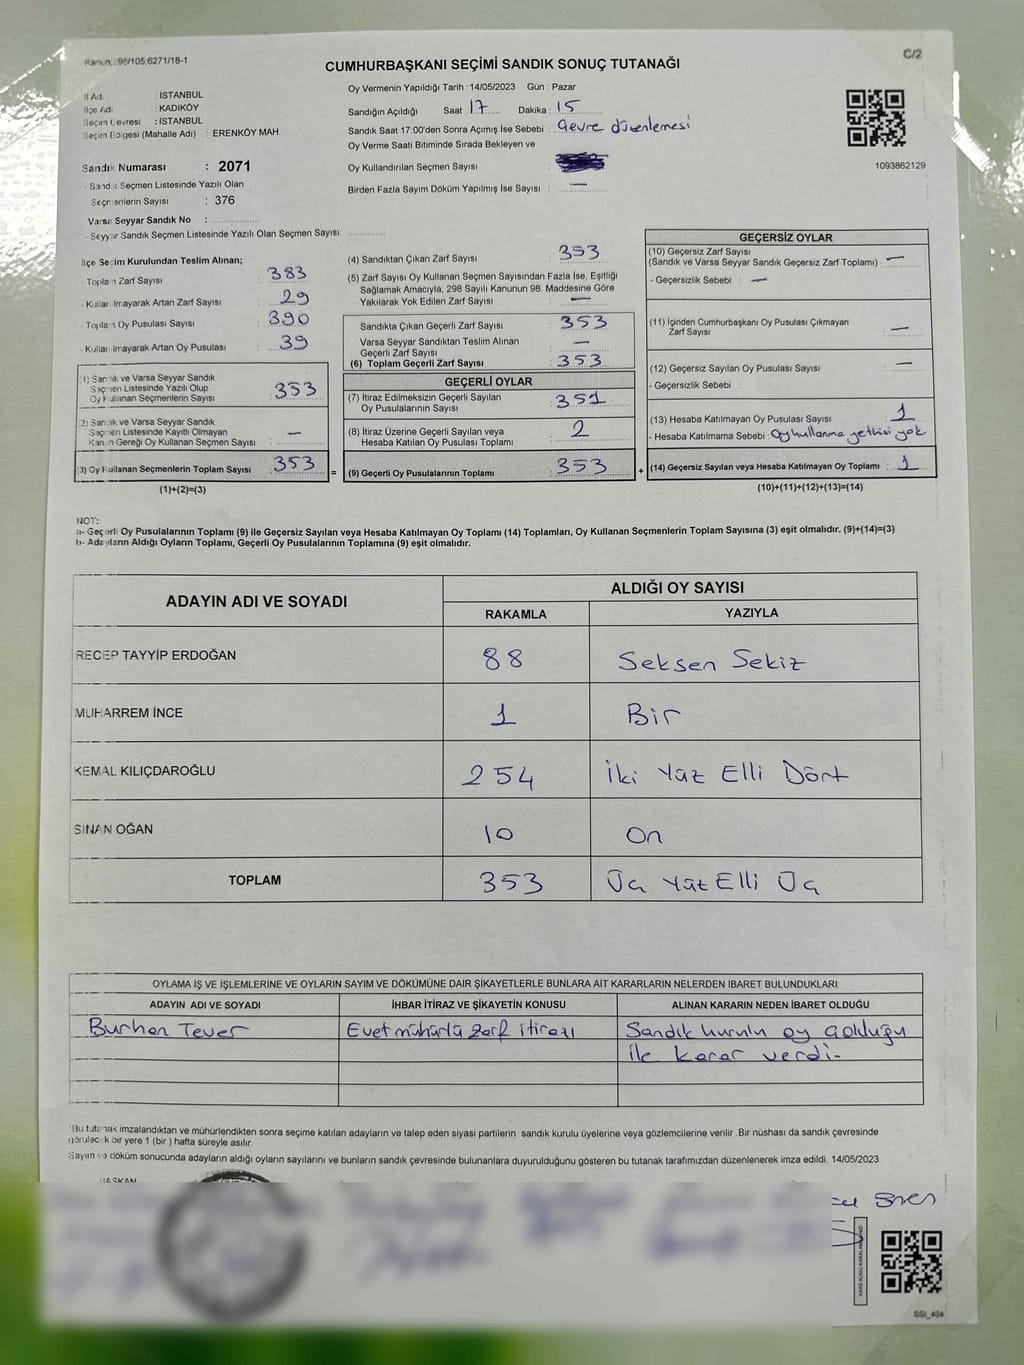 Kanun: 98/105;6271/18-1
C/2
CUMHURBAŞKANI SEÇİMİ SANDIK SONUÇ TUTANAĞI
İl Adı : İSTANBUL
İlçe Adı : KADIKÖY
Seçim Çevresi : İSTANBUL
Seçim Bölgesi (Mahalle Adı) : ERENKÖY MAH.
Sandık Numarası : 2071
- Sandık Seçmen Listesinde Yazılı Olan
Seçmenlerin Sayısı : 376
Varsa Seyyar Sandık No :
- Seyyar Sandık Seçmen Listesinde Yazılı Olan Seçmen Sayısı:
Oy Vermenin Yapıldığı Tarih : 14/05/2023 Gün : Pazar
Sandığın Açıldığı Saat 17 Dakika : 15
Sandık Saat 17:00'den Sonra Açımış İse Sebebi : Çevre düzenlemesi
Oy Verme Saati Bitiminde Sırada Bekleyen ve
Oy Kullandırılan Seçmen Sayısı :
Birden Fazla Sayım Döküm Yapılmış İse Sayısı : —
1093862129
İlçe Seçim Kurulundan Teslim Alınan;
- Toplam Zarf Sayısı : 383
- Kullanılmayarak Artan Zarf Sayısı : 29
- Toplam Oy Pusulası Sayısı : 390
- Kullanılmayarak Artan Oy Pusulası : 39
(1) Sandık ve Varsa Seyyar Sandık
Seçmen Listesinde Yazılı Olup
Oy Kullanan Seçmenlerin Sayısı : 353
(2) Sandık ve Varsa Seyyar Sandık
Seçmen Listesinde Kayıtlı Olmayan
Kanun Gereği Oy Kullanan Seçmen Sayısı : —
(3) Oy Kullanan Seçmenlerin Toplam Sayısı : 353 =
(1)+(2)=(3)
(4) Sandıktan Çıkan Zarf Sayısı : 353
(5) Zarf Sayısı Oy Kullanan Seçmen Sayısından Fazla İse, Eşitliği
Sağlamak Amacıyla; 298 Sayılı Kanunun 98. Maddesine Göre
Yakılarak Yok Edilen Zarf Sayısı : —
Sandıkta Çıkan Geçerli Zarf Sayısı : 353
Varsa Seyyar Sandıktan Teslim Alınan
Geçerli Zarf Sayısı : —
(6) Toplam Geçerli Zarf Sayısı : 353
GEÇERLİ OYLAR
(7) İtiraz Edilmeksizin Geçerli Sayılan
Oy Pusulalarının Sayısı : 351
(8) İtiraz Üzerine Geçerli Sayılan veya
Hesaba Katılan Oy Pusulası Toplamı : 2
(9) Geçerli Oy Pusulalarının Toplamı : 353 +
GEÇERSİZ OYLAR
(10) Geçersiz Zarf Sayısı
(Sandık ve Varsa Seyyar Sandık Geçersiz Zarf Toplamı) : —
- Geçersizlik Sebebi : —
(11) İçinden Cumhurbaşkanı Oy Pusulası Çıkmayan
Zarf Sayısı : —
(12) Geçersiz Sayılan Oy Pusulası Sayısı : —
- Geçersizlik Sebebi :
(13) Hesaba Katılmayan Oy Pusulası Sayısı : 1
- Hesaba Katılmama Sebebi : Oy kullanma yetkisi yok
(14) Geçersiz Sayılan veya Hesaba Katılmayan Oy Toplamı : 1
(10)+(11)+(12)+(13)=(14)
NOT:
a- Geçerli Oy Pusulalarının Toplamı (9) ile Geçersiz Sayılan veya Hesaba Katılmayan Oy Toplamı (14) Toplamları, Oy Kullanan Seçmenlerin Toplam Sayısına (3) eşit olmalıdır. (9)+(14)=(3)
b- Adayların Aldığı Oyların Toplamı, Geçerli Oy Pusulalarının Toplamına (9) eşit olmalıdır.
ADAYIN ADI VE SOYADI
ALDIĞI OY SAYISI
RAKAMLA YAZIYLA
RECEP TAYYİP ERDOĞAN 88 Seksen Sekiz
MUHARREM İNCE 1 Bir
KEMAL KILIÇDAROĞLU 254 İki Yüz Elli Dört
SİNAN OĞAN 10 On
TOPLAM 353 Üç Yüz Elli Üç
OYLAMA İŞ VE İŞLEMLERİNE VE OYLARIN SAYIM VE DÖKÜMÜNE DAİR ŞİKAYETLERLE BUNLARA AİT KARARLARIN NELERDEN İBARET BULUNDUKLARI
ADAYIN ADI VE SOYADI İHBAR İTİRAZ VE ŞİKAYETİN KONUSU ALINAN KARARIN NEDEN İBARET OLDUĞU
Burhan Tever Evet mühürlü zarf itirazı Sandık kurulu oy çokluğu
ile karar verdi.
*Bu tutanak imzalandıktan ve mühürlendikten sonra seçime katılan adayların ve talep eden siyasi partilerin sandık kurulu üyelerine veya gözlemcilerine verilir. Bir nüshası da sandık çevresinde
görülecek bir yere 1 (bir ) hafta süreyle asılır.
Sayım ve döküm sonucunda adayların aldığı oyların sayılarını ve bunların sandık çevresinde bulunanlara duyurulduğunu gösteren bu tutanak tarafımızdan düzenlenerek imza edildi. 14/05/2023
BAŞKAN
SSI_404